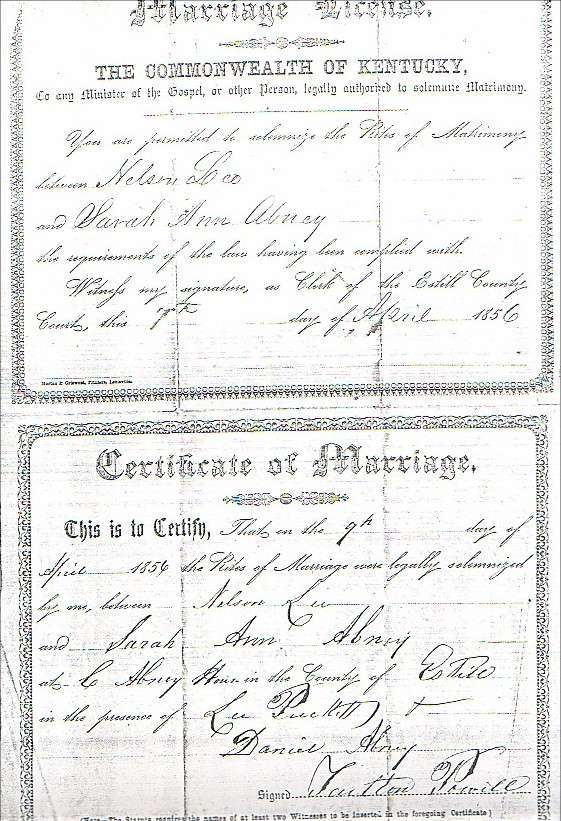 Marriage License.
THE COMMONWEALTH OF KENTUCKY,
To any Minister of the Gospel, or other Person, legally authorized to solemnize Matrimony.
You are permitted to solemnize the Rites of Matrimony
between Nelson Lee
and Sarah Ann Abney
the requirements of the law having been complied with.
Witness my signature, as Clerk of the Estill County
Court, this day of April 1856
Morton & Griswold, Printers, Louisville.
Certificate of Marriage.
This is to Certify, That on the 9th day of
April 1856 the Rites of Marriage were legally solemnized
by me, between Nelson Lee
and Sarah Ann Abney
at C Abney House in the County of Estill
in the presence of Lee Puckett +
Daniel Abney
Signed
(Note—The Statute requires the names of at least two Witnesses to be inserted in the foregoing Certificate)